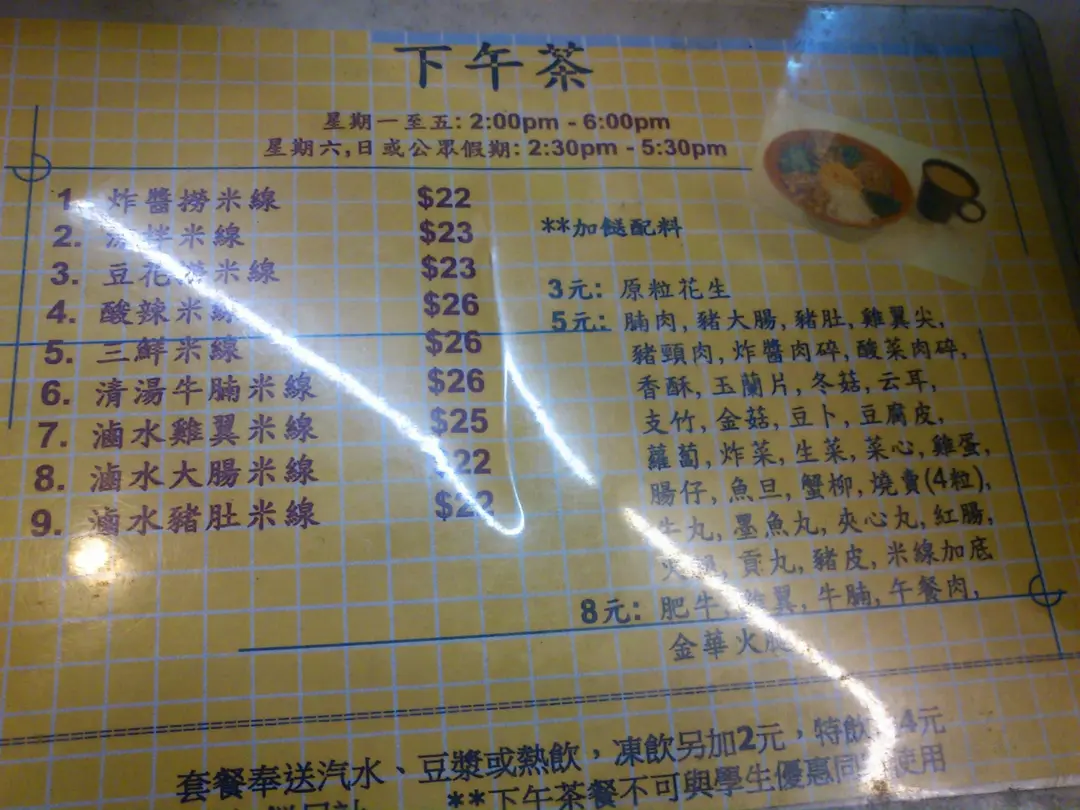 下午茶
星期一至五: 2:00pm - 6:00pm
星期六,日或公眾假期: 2:30pm - 5:30pm
1. 炸醬撈米線 $22
2. 拌米線 $23
3. 豆花撈米線 $23
4. 酸辣米線 $26
5. 三鮮米線 $26
6. 清湯牛腩米線 $26
7. 滷水雞翼米線 $25
8. 滷水大腸米線 $22
9. 滷水豬肚米線 $22
**加餸配料
3元: 原粒花生
5元: 腩肉, 豬大腸, 豬肚, 雞翼尖,
豬頸肉, 炸醬肉碎, 酸菜肉碎,
香酥, 玉蘭片, 冬菇, 云耳,
支竹, 金菇, 豆卜, 豆腐皮,
蘿蔔, 炸菜, 生菜, 菜心, 雞蛋,
腸仔, 魚旦, 蟹柳, 燒賣(4粒),
牛丸, 墨魚丸, 夾心丸, 紅腸,
貢丸, 豬皮, 米線加底
8元: 肥牛, 翼, 牛腩, 午餐肉,
金華火腿
套餐奉送汽水、豆漿或熱飲，凍飲另加2元，特飲 4元
**下午茶餐不可與學生優惠同 使用